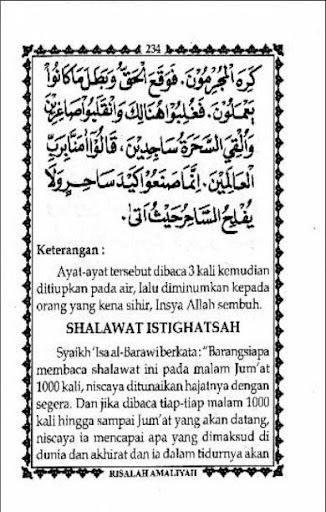 234
كَرِهَ الْمُجْرِمُوْنَ. فَوَقَعَ الْحَقُّ وَبَطَلَ مَاكَانُوْا
يَعْمَلُوْنَ. فَغُلِبُوْا هُنَالِكَ وَانْقَلَبُوْا صَاغِرِيْنَ
وَأُلْقِيَ السَّحَرَةُ سَاجِدِيْنَ، قَالُوْا آمَنَّا بِرَبِّ
الْعَالَمِيْنَ. إِنَّمَا صَنَعُوْا كَيْدَ سَاحِرٍ وَلَا
يُفْلِحُ السَّاحِرُ حَيْثُ أَتَى.
Keterangan :
Ayat-ayat tersebut dibaca 3 kali kemudian
ditiupkan pada air, lalu diminumkan kepada
orang yang kena sihir, Insya Allah sembuh.
SHALAWAT ISTIGHATSAH
Syaikh 'Isa al-Barawi berkata : "Barangsiapa
membaca shalawat ini pada malam Jum'at
1000 kali, niscaya ditunaikan hajatnya dengan
segera. Dan jika dibaca tiap-tiap malam 1000
kali hingga sampai Jum'at yang akan datang,
niscaya ia mencapai apa yang dimaksud di
dunia dan akhirat dan ia dalam tidurnya akan
RISALAH AMALIYAH